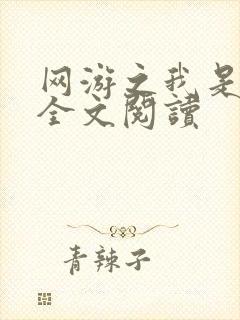 网游之我是
全文閱讀
青辣子